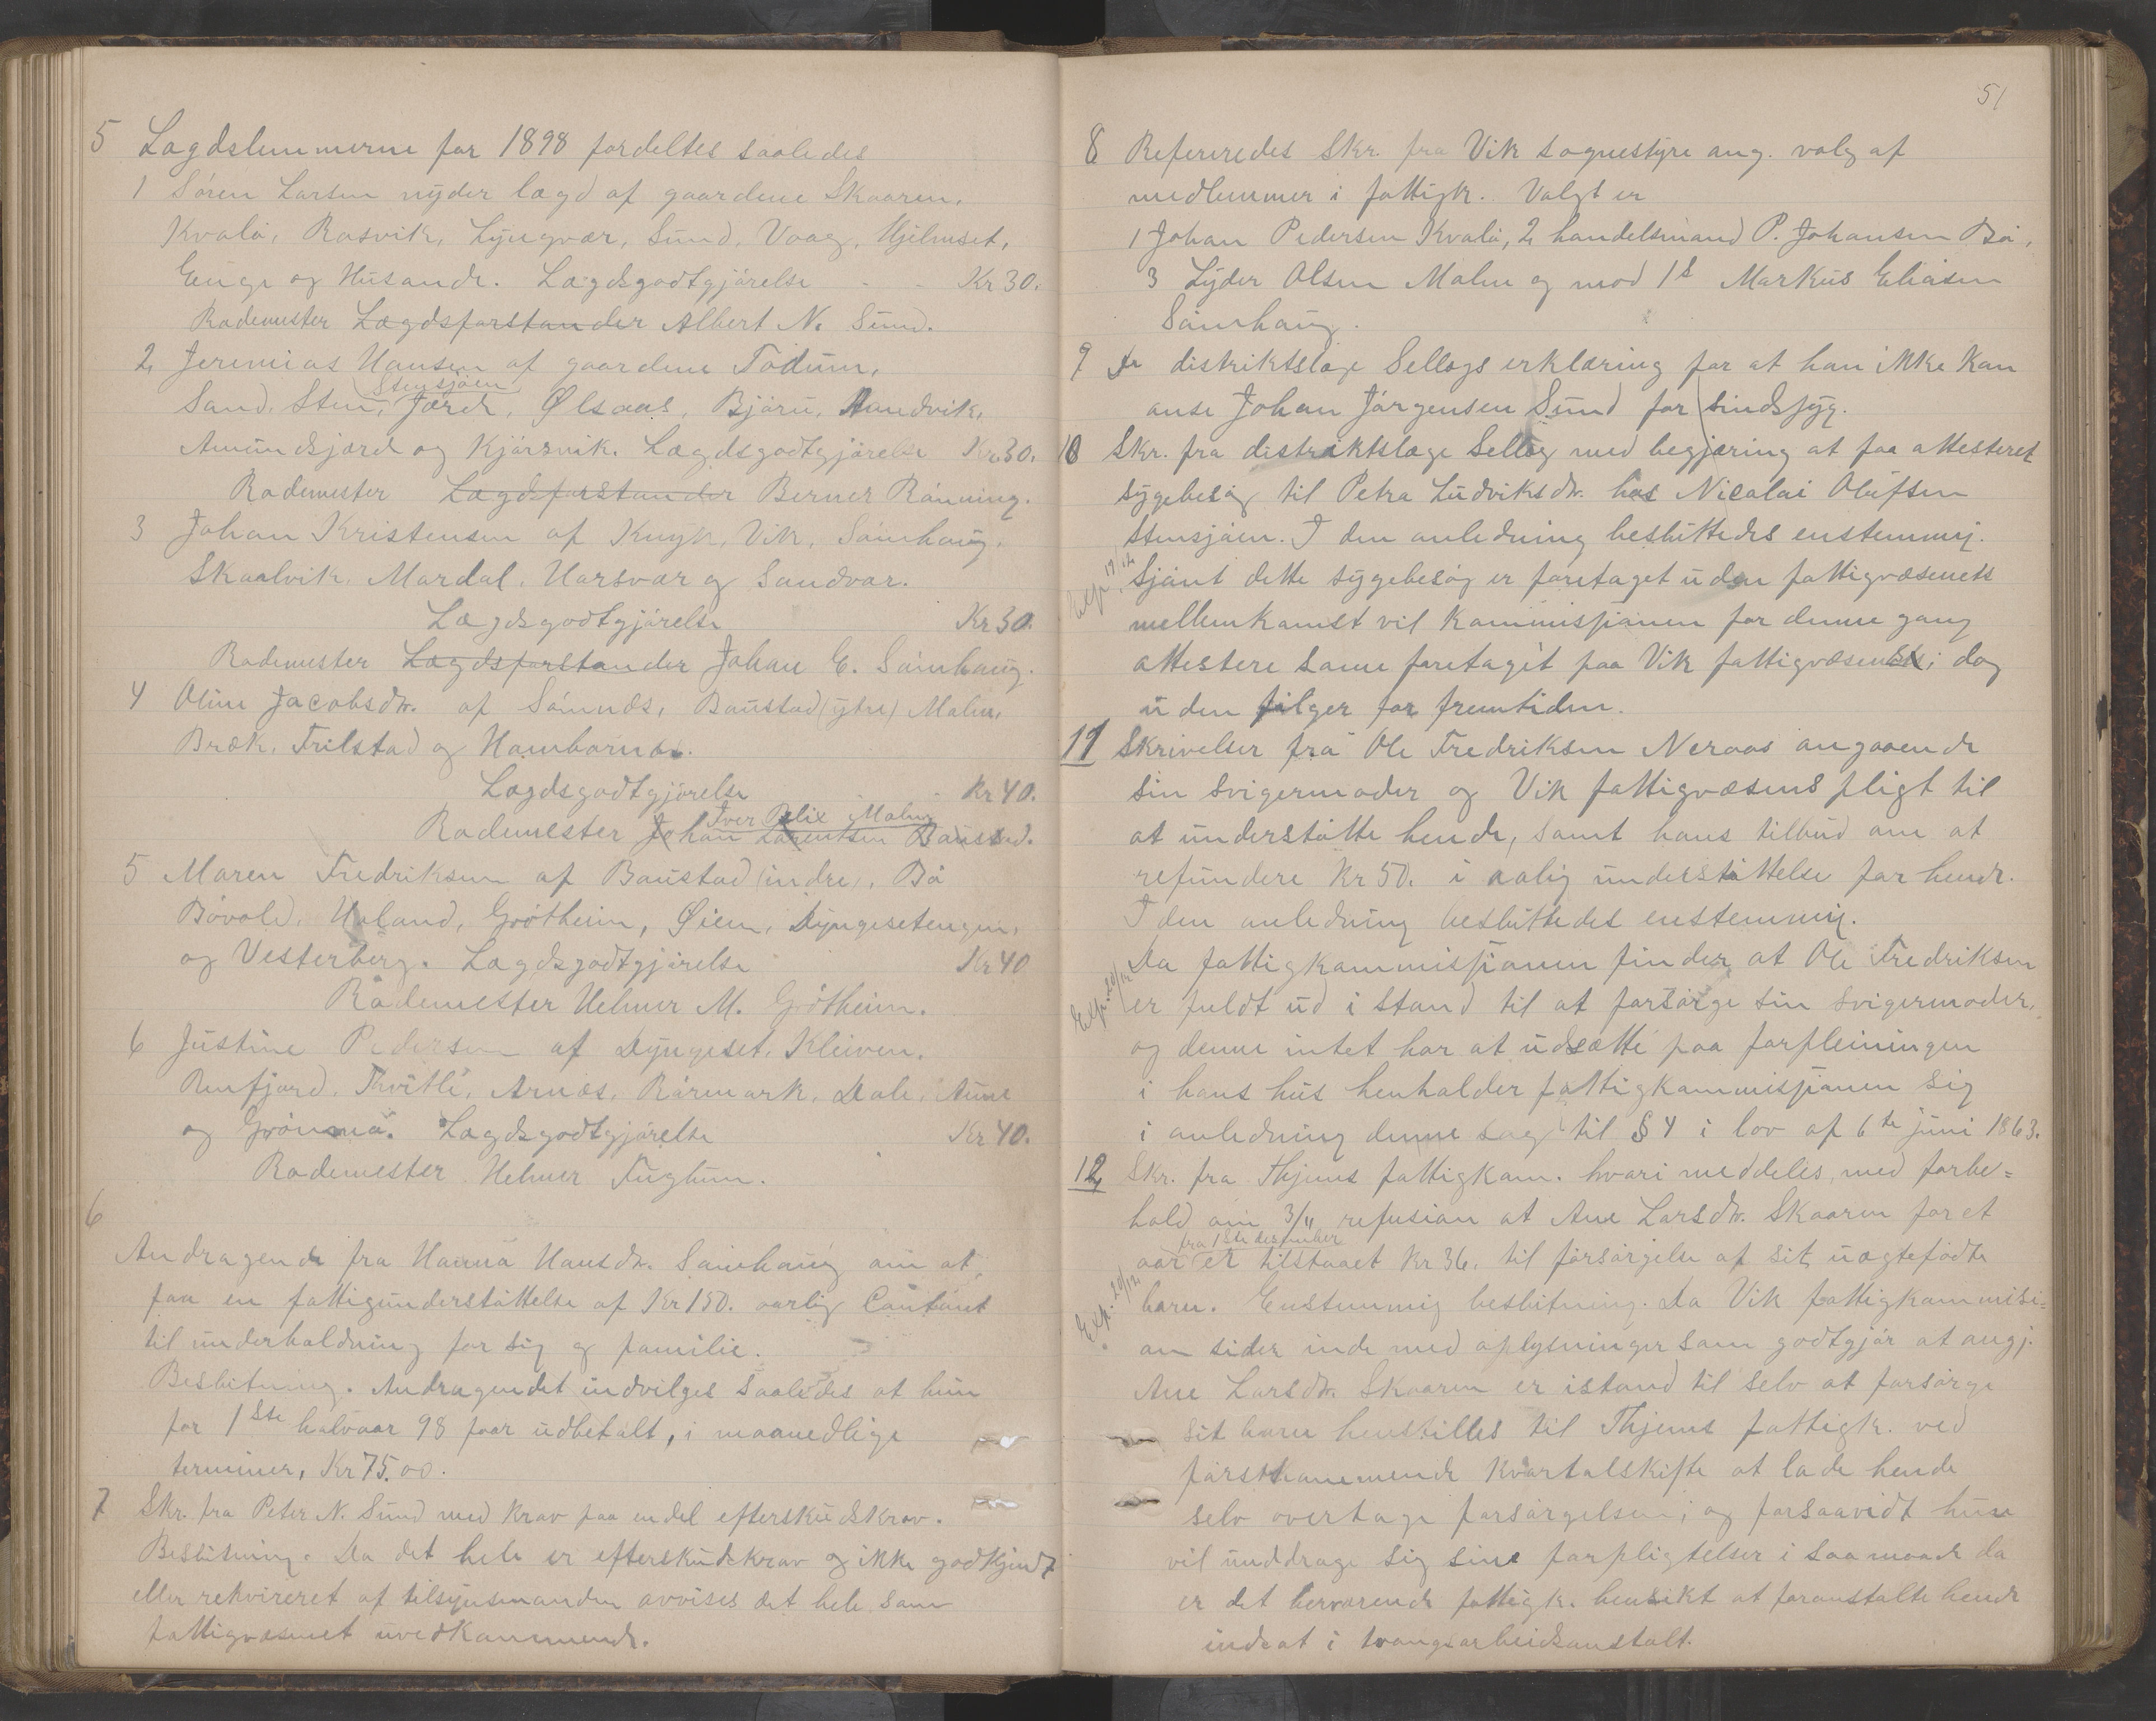 5 Lægdslemmerne for 1898 fordeltes saaledes
1 Sören Larsen nyder lægd af gaardene Skaaren,
Kvalö, Rosvik, Lyngvær, Sund, Vaag, Hjelmset,
Enge og Husande. Lægdsgodtgjörelse - - Kr 30.
Rodemester Lægdsforstander Albert N. Sund.
2, Jeremias Hansen af gaardene Tödum,
Stensjöen
Sand, Sten, Færch, Ølsaas, Björu, Aandvik,
Amundsjord og Kjærsvik. Lægdsgodtgjörelse Kr 30.
Rodemester Lægdsforstander Berner Rönning.
3 Johan Kristensen af Knyk, Vik, Sömhaug,
Skaalvik, Mardal, Harsvær og Sandvær.
Lægdsgodtgjörelse Kr 30.
Rodemester Lægdsforstander Johan E. Sömhaug.
4 Oline Jacobsdtr. af Sömnæs, Baustad (ytre) Malm,
Bræk, Trilstad og Hambornæs.
Lægdsgodtgjörelse - - Kr 40.
Iver Felix Malm
Rodemester Johan Larentsen Baustad.
5 Maren Fredriksen af Baustad (indre), Bö
Bövold, Uoland, Gröttheim, Øien, Dyngesetengen,
og Vesterberg. Lægdsgodtgjörelse Kr 40
Rodemester Helmer M. Gröttheim.
6 Justine Pedersen af Dyngeset, Kleiven,
Renfjord, Tuvitle, Arnæs, Rörmark, Dale, Aune
og Grönmö. Lægdsgodtgjörelse Kr 40.
Rodemester Helmer Fuglum.
6
Andragende fra Hanna Hansdtr. Sömhaug om at
faa en fattigunderstöttelse af Kr 150. aarlig Contant
til underholdning for sig og familie.
Beslutning. Andragendet indvilges saaledes at hun
for 1ste halvaar 98 faar udbetalt, i maanedlige
terminer, Kr 75.00.
7 Skr. fra Peter N. Sund med krav paa endel efterskudskrav.
Beslutning. Da det hele er efterskudskrav og ikke godkjendt
eller rekvireret af tilsynsmanden avvises det hele som
fattigvæsenet uvedkommende.
51
8 Refereredes Skr. fra Vik sognestyre ang. valg af
medlemmer i fattigk. Valgt er
1 Johan Pedersen Kvalö, 2, handelsmand P. Johansen Bö,
3 Lyder Olsen Malm og mod 1s Markus Eliasen
Sömhaug.
9 Fr distriktslæge Sellægs erklæring for at han ikke kan
anse Johan Jörgensen Sund for sindssyg.
10 Skr. fra distriktslæge Selløg med begjæring at faa attesteret
sygebesög til Petra Ludviksdtr. hos Nicolai Olufsen
Stensjöen. I den anledning besluttedes enstemmig.
Exp. 19/12
Sjönt dette sygebesög er foretaget uden fattigvæsenets
mellemkomst vil kommissionen for denne gang
attestere same foretaget paa Vik fattigvæsens i dag
uden fölger for fremtiden.
11 Skrivelser fra Ole Fredriksen Neraas angaaende
sin svigermoder og Vik fattigvæsens pligt til
at understötte hende, samt hans tilbud om at
refundere Kr 50. i aalig understöttelse for hende.
I den anledning besluttedes enstemmig.
Exp. 20/12
Da fattigkommissionen finder at Ole Fredriksen
er fuldt ud i stand til at forsörge sin svigermoder,
og denne intet har at udsætte paa forpleiningen
i hans hus henholder fattigkommissionen sig
i anledning denne sag til § 4 i lov af 6te juni 1863.
12, Skr. fra Thjems fattigkom. hvori meddeles, med forbe=
hold om 3/11 refusion at Ane Larsdtr. Skaaren for et
fra 1ste desember
aar er tilstaaet Kr 36. til forsörgelse af sit uægtefödte
Exp. 20/12
barn. Enstemmig beslutning. Da Vik fattigkommisi=
on sider inde med oplysninger som godtgjör at angj.
Ane Larsdtr. Skaaren er istand til selv at forsörge
sit barn henstilles til Thjems fattigk. ved
förstkommende kvartalskifte at lade hende
selv overtage forsörgelsen, og forsaavidt hun
vil unddrage sig sine forpligtelser i saa maade da
er det herværende fattigk. hensikt at foranstalte hende
indsat i tvangsarbeidsanstalt.